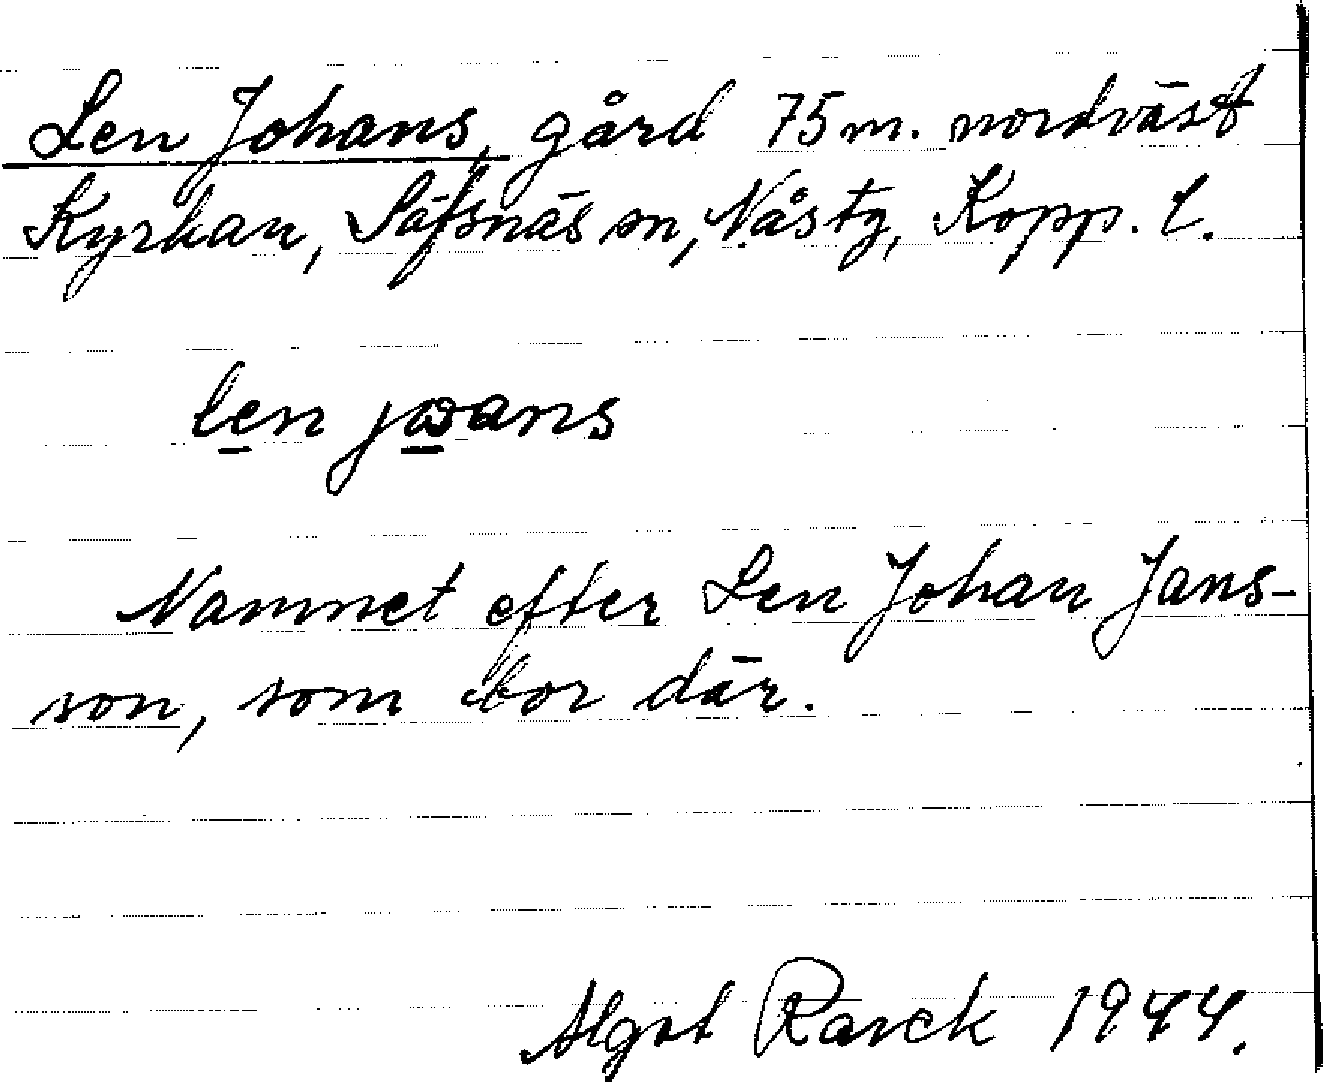 Len Johans, gård 75 m. nordväst
Kyrkan, Säfsnäs sn, Nås tg, Kopp. l.
len jωans
Namnet efter Len Johan Jans-
son, som bor där.
Algot Rarck 1944.